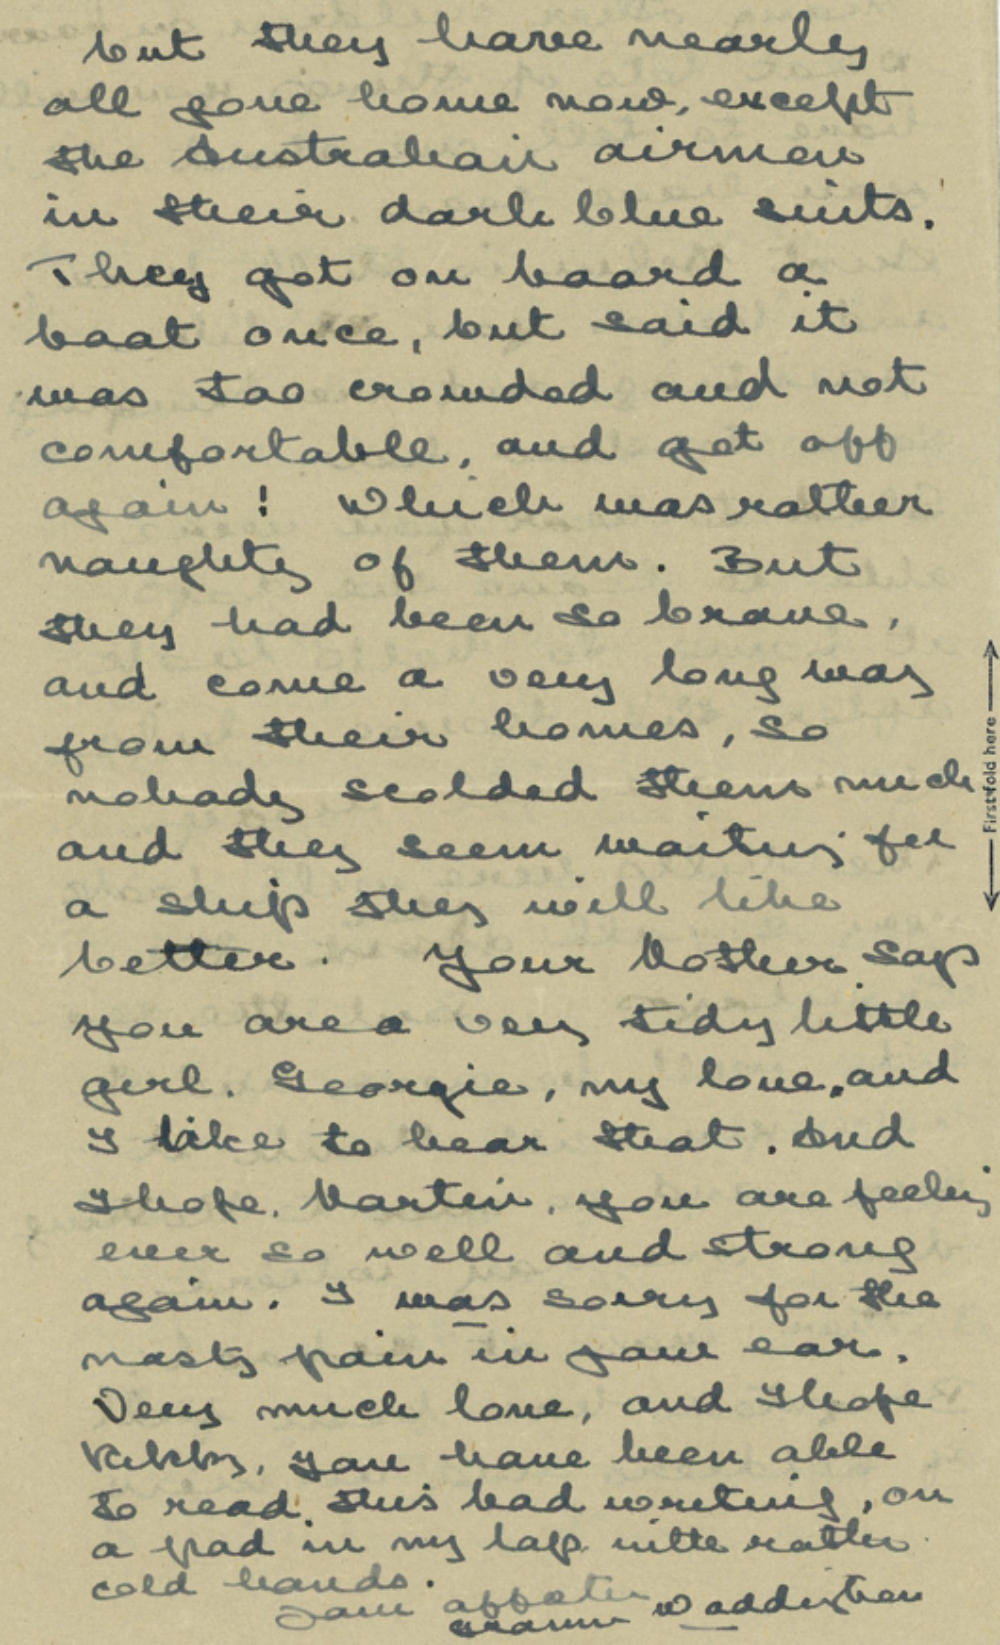 but they have nearly
all gone home now, except
the Australian airmen
in their dark blue suits.
They got on board a
boat once, but said it
was too crowded and not
comfortable, and got off
again! Which was rather
naughty of them. But
they had been so brave,
and come a very long way
from their homes, so
nobody scolded them much
and they seem waiting for
a ship they will like
better. Your Mother says
you are a very tidy little
girl. Georgie, my love, and
I like to hear that. And
I hope, Martin, you are feeling
ever so well and strong
again. I was sorry for the
nasty pain in your ear.
Very much love, and I hope
you have been able
to read this bad writing, on
a pad in my lap with rather
cold hands.
Your affate
Grannie Waddington
First fold here